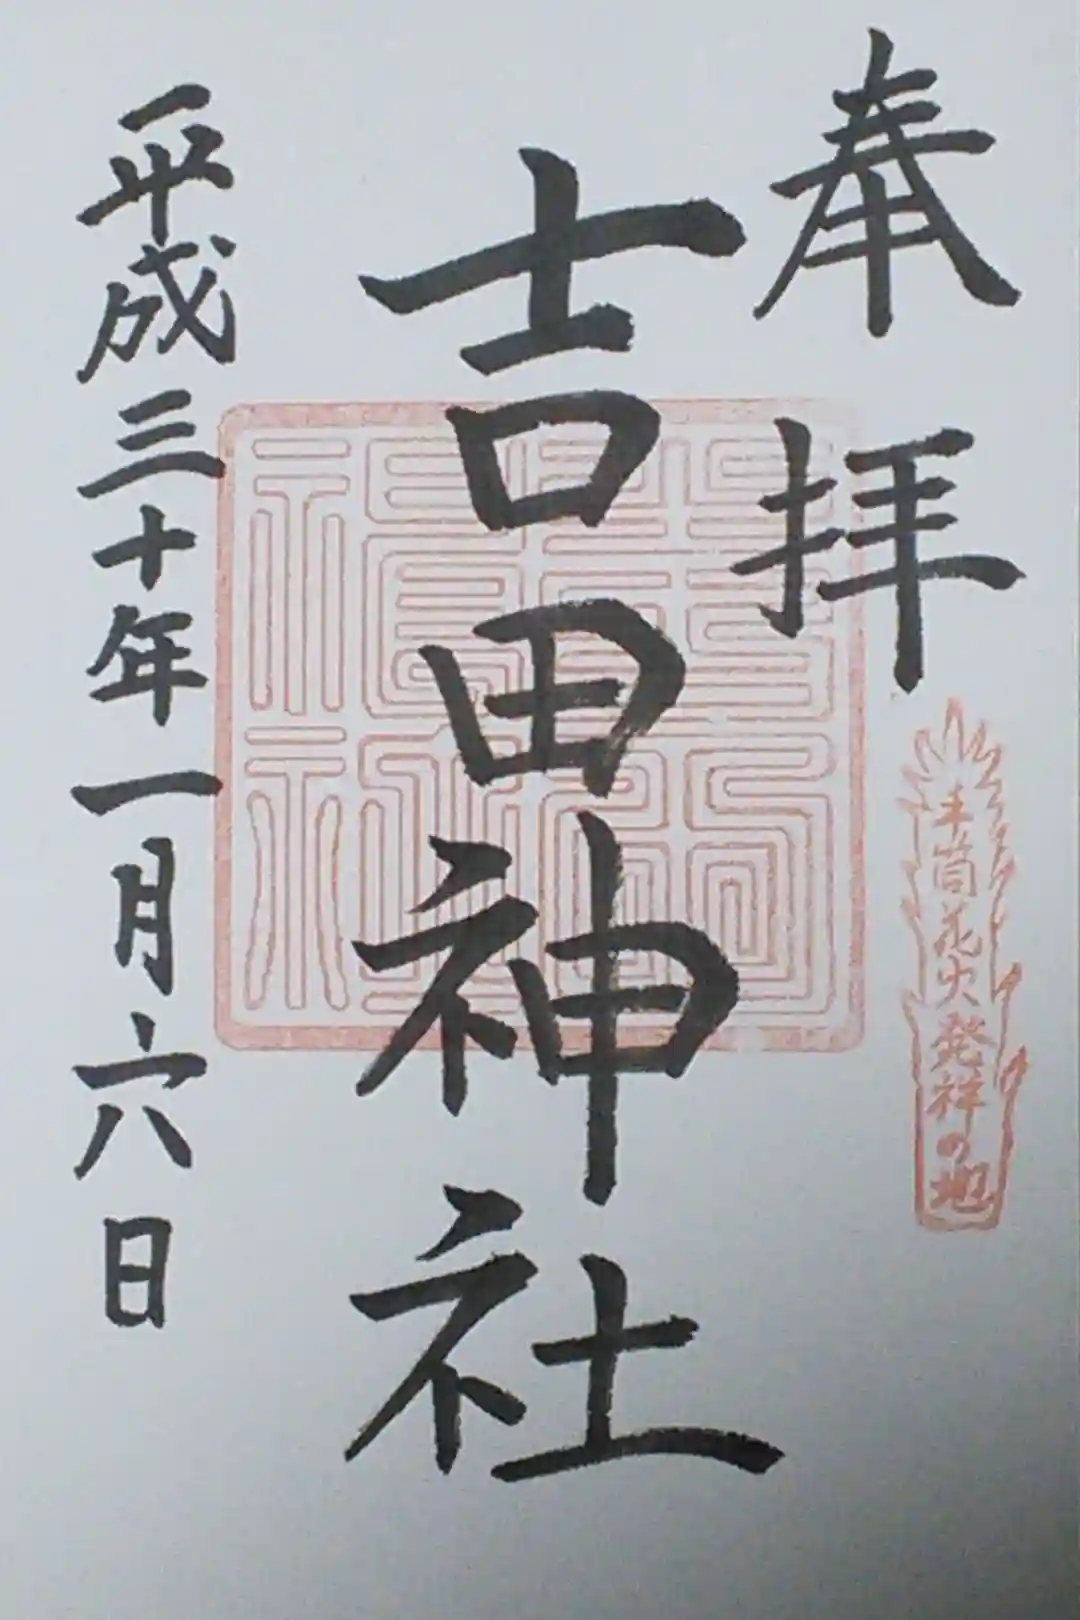 奉拝
手筒花火発祥の地
吉田神社
平成三十年一月六日